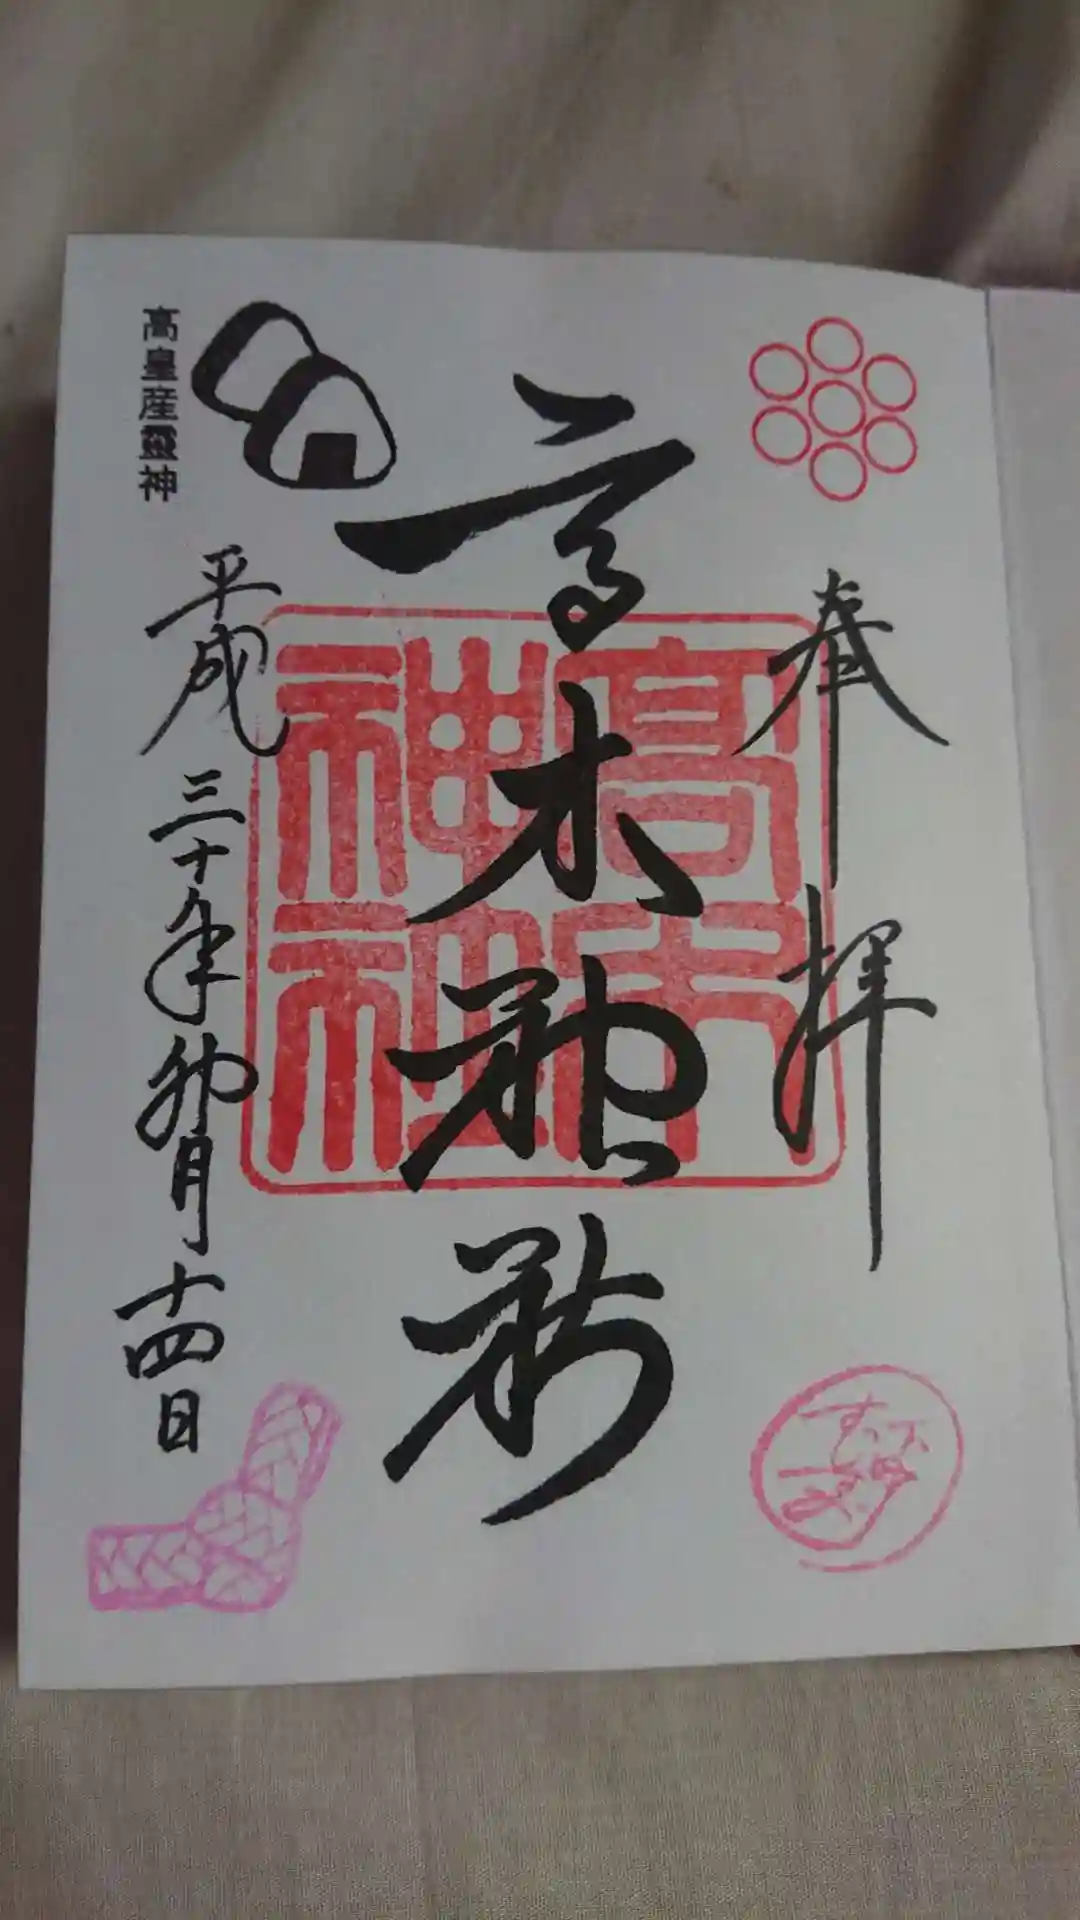 奉拝
高木神社
高木
神社
平成三十年卯月十四日
高皇産靈神